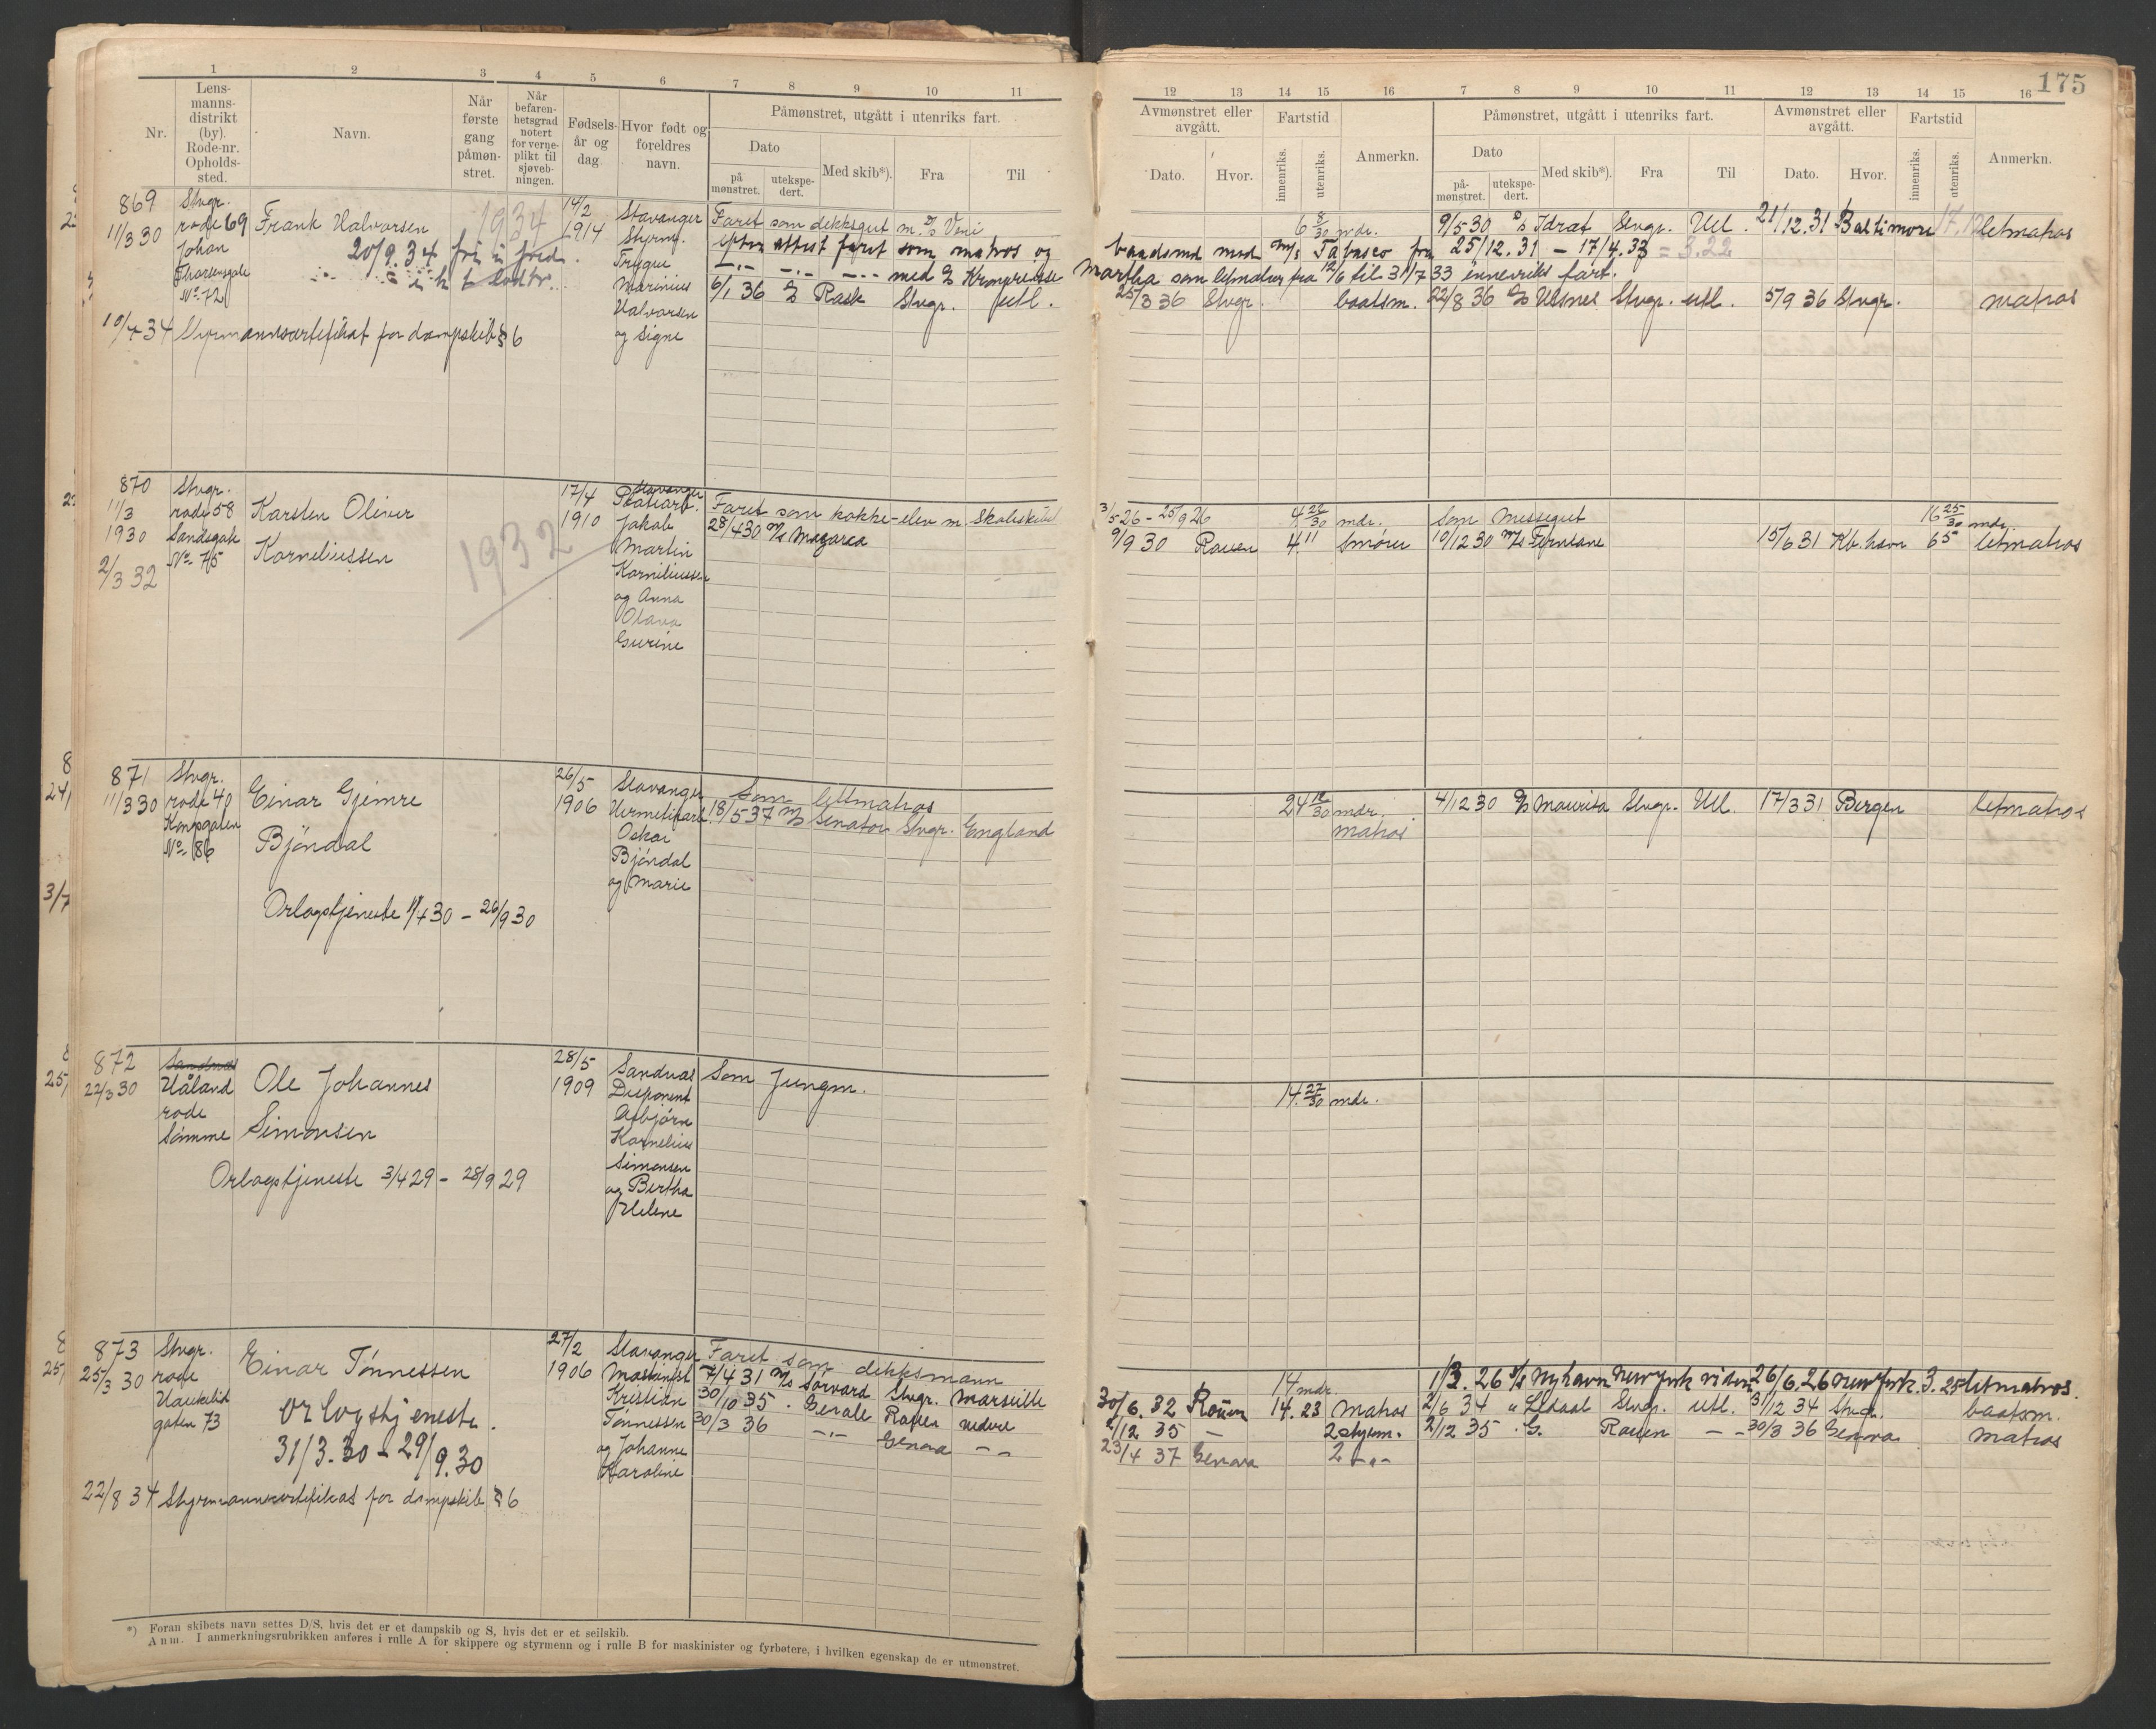 1 2 3 4 5 6 7 8 9 10 11
Nr.
Lens-
manns-
distrikt
(by).
Rode-nr.
Opholds-
sted.
Navn.
Når
første
gang
påmøn-
stret.
Når
befaren-
hetsgrad
notert
for verne-
plikt til
sjøveb-
ningen.
Fødsels-
år og
dag
Hvor født og
foreldres
navn.
Påmønstret, utgått i utenriks fart.
Dato
på
mønstret.
utekspe-
dert.
Med skib*).
Fra
Til
869
11/3 30
Stvgr.
rode 69
Johan
Thorsensgate
No 72
Frank Halvorsen
1934
20/9.34 fri i fred.
14/2
1914
Stavanger
Styrm.
Trygve
Marinius
Halvorsen
og Signe
Faret som dekksgut m. D/S Veni
efter attest faret som matros og
—"— —"— —"— med D/S Kronprinsesse
6/1 36 D/S Rask Stvgr. utl.
10/4 34 Styrmannssertifikat for dampskib § 6
870
11/3
1930
2/3 32
Stvgr.
rode 58
Sandsgate
No 75
Karsten Oliver
Korneliussen
1932
17/4
1910
Stavanger
Jakob
Martin
Korneliussen
og Anna
Olava
Gurine
Faret som kokke-elev m. Skoleskibet
28/4 30 M/S Mazarea
871
11/3 30
Stvgr.
rode 40
Kongsgaten
No 86
Einar Gjemre
Bjöndal
Orlogstjeneste 1/4 30 - 26/9 30
26/5
1906
Stavanger
Hermetikarb.
Oskar
Bjöndal
og Marie
Som letmatros
18/5 37 M/S Senator Stvgr. England
872
22/3 30
Sandnes
Håland
rode
Sømme
Ole Johannes
Simonsen
Orlogstjeneste 3/4 29 - 28/9 29
28/5
1909
Sandnes
Disponent
Asbjørn
Kornelius
Simonsen
og Bertha
Helene
Som Jungm.
873
25/3 30
Stvgr.
rode
Haukelid
gaten 73
Einar Tönnessen
orlogstjeneste.
31/3.30 - 29/9.30
27/2
1906
Stavanger
Maskinist
Kristian
Tønnessen
og Johanne
Karoline
Faret som dekksmann
7/4 31 M/S Sorvard Stvgr. Marseille
30/10 35 Gerale Rouen
30/3 36 —"— Genova — —
22/8 34 Styrmannssertifikat for dampskib § 6
*) Foran skibets navn settes D/S, hvis det er et dampskib og S, hvis det er et seilskib.
Anm. I anmerkningsrubrikken anføres i rulle A for skippere og styrmenn og i rulle B for maskinister og fyrbøtere, i hvilken egenskap de er utmønstret.
175
12 13 14 15 16 7 8 9 10 11 12 13 14 15 16
Avmønstret eller
avgått.
Dato.
Hvor.
Fartstid
innenriks.
utenriks.
Anmerkn.
Påmønstret, utgått i utenriks fart.
Dato
på-
mønstret.
utekspe-
dert.
Med skib*).
Fra
Til
Avmønstret eller
avgått.
Dato.
Hvor.
Fartstid
innenriks.
utenriks.
Anmerkn.
6 8/30 mdr. 9/5 30 D/S Idræt Stvgr. Utl. 21/12.31 Baltimore 17.12 letmatros
baadsmd med M/S Tabasco fra 25/12.31 - 17/4.33 = 3.22
Martha som letmatros fra 12/6 til 31/7 33 innenriks fart.
25/3 36 Stvgr. baatsm. 22/8 36 D/S Utsnes Stvgr. utl. 5/9 36 Stvgr. matros
3/5 26 - 25/9 26 4 28/30 mdr. Som messegut 16 25/30 mdr.
9/9 30 Rouen 4.11 Smører 10/12 30 M/S Fernlane 15/6 31 Kb.havn 6 5 letmatros
24 12/30 mdr. 4/12 30 D/S Maurita Stvgr. Utl. 17/3 31 Bergen letmatros
matros
14 27/30 mdr.
14 mdr. 1/3.26 D/S Nyhavn New York 26/6.26 New York. 3.25 letmatros.
30/6.32 Rouen 14.23 Matros 2/6 34 Stvgr. utl. 31/12 34 Stvgr. baatsm.
2/12 35 — 2 styrm. 2/12 35 G. Rouen — — 30/3 36 Genova matros
23/4 37 Genova 2 —"—